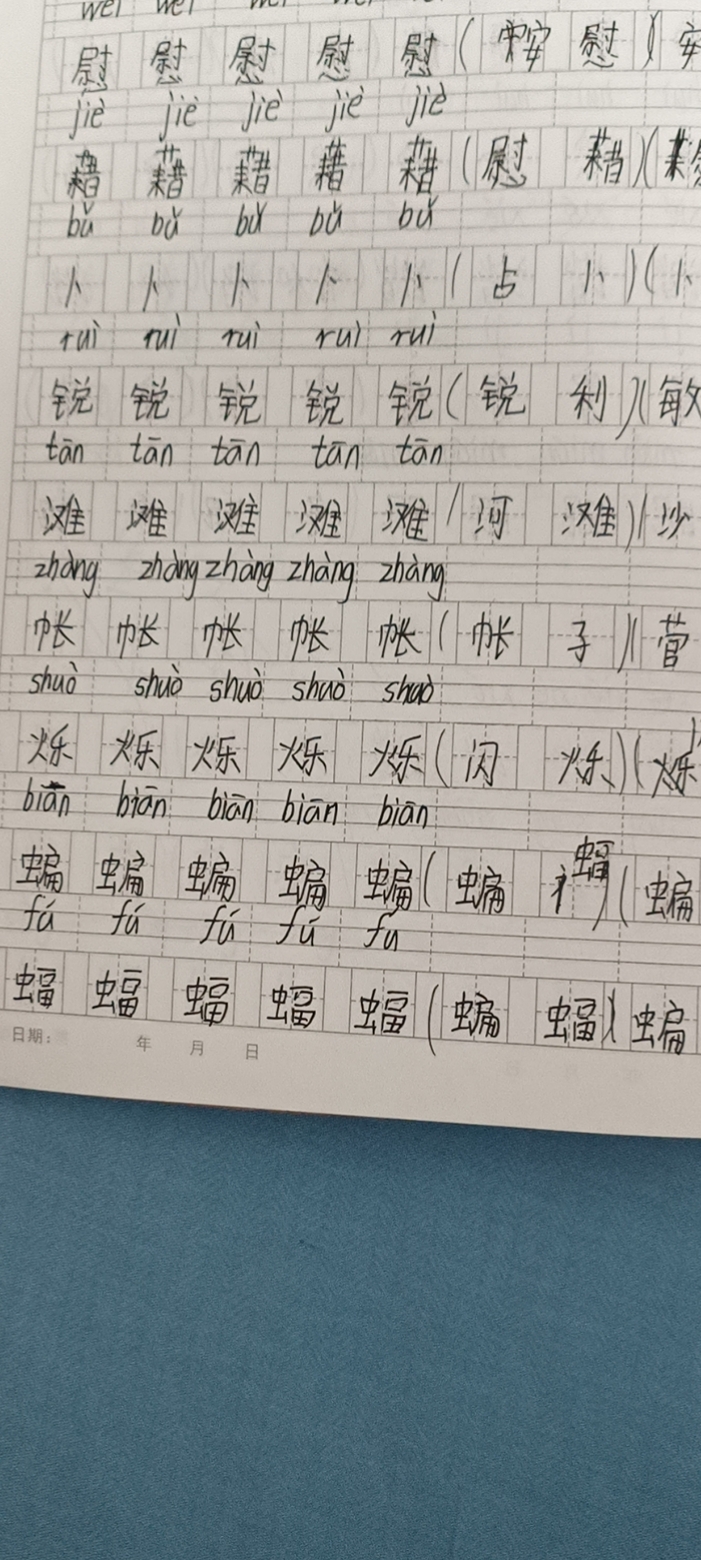 wèi wèi wèi wèi wèi
慰 慰 慰 慰 慰 ( 安 慰 )( 安
jiè jiè jiè jiè jiè
藉 藉 藉 藉 藉 ( 慰 藉 )(
bǔ bǔ bǔ bǔ bǔ
卜 卜 卜 卜 卜 ( 占 卜 )( 卜
ruì ruì ruì ruì ruì
锐 锐 锐 锐 锐 ( 锐 利 )( 敏
tān tān tān tān tān
滩 滩 滩 滩 滩 ( 河 滩 )( 沙
zhàng zhàng zhàng zhàng zhàng
帐 帐 帐 帐 帐 ( 帐 子 )( 营
shuò shuò shuò shuò shuò
烁 烁 烁 烁 烁 ( 闪 烁 )( 烁
biān biān biān biān biān
蝙 蝙 蝙 蝙 蝙 ( 蝙 蝠 )( 蝙
fú fú fú fú fú
蝠 蝠 蝠 蝠 蝠 ( 蝙 蝠 )( 蝙
日期: 年 月 日